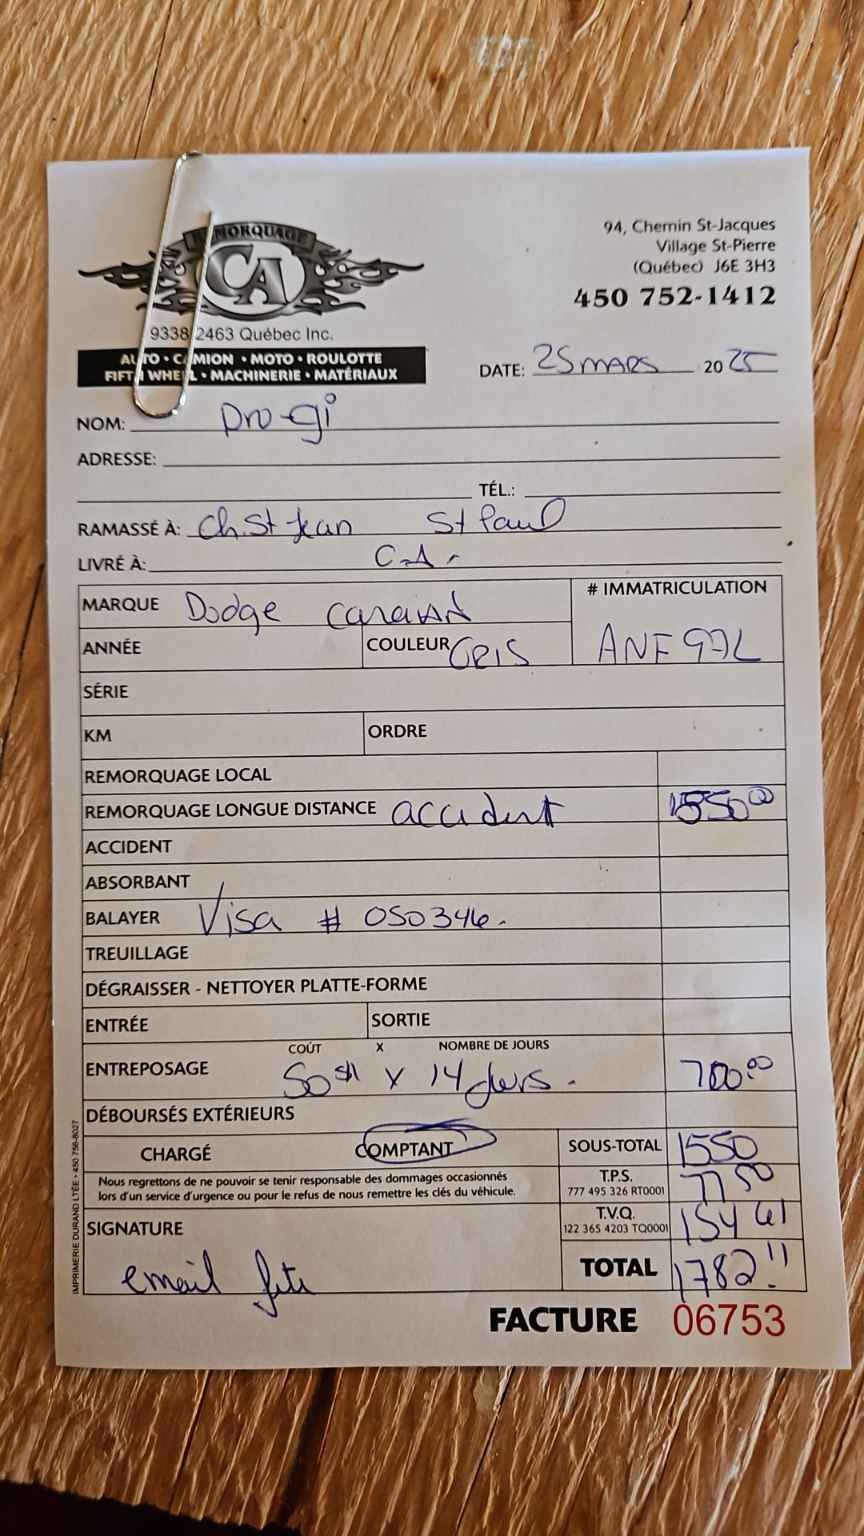 REMORQUAGE
CA
9338 2463 Québec Inc.
AUTO • CAMION • MOTO • ROULOTTE
FIFTH WHEEL • MACHINERIE • MATÉRIAUX
94, Chemin St-Jacques
Village St-Pierre
(Québec) J6E 3H3
450 752-1412
DATE: 25 mars 2025
NOM: Pro-gi
ADRESSE:
TÉL.:
RAMASSÉ À: Ch. St Jean St Paul
LIVRÉ À: C.A.
MARQUE Dodge caravan
# IMMATRICULATION
ANNÉE COULEUR GRIS
SÉRIE
KM ORDRE
REMORQUAGE LOCAL
REMORQUAGE LONGUE DISTANCE accident
ACCIDENT
ABSORBANT
BALAYER Visa # 050346.
TREUILLAGE
DÉGRAISSER - NETTOYER PLATTE-FORME
ENTRÉE SORTIE
COÛT X NOMBRE DE JOURS
ENTREPOSAGE 50 x 14 jours. 700.00
DÉBOURSÉS EXTÉRIEURS
CHARGÉ COMPTANT SOUS-TOTAL 1550
Nous regrettons de ne pouvoir se tenir responsable des dommages occasionnés
lors d'un service d'urgence ou pour le refus de nous remettre les clés du véhicule.
T.P.S. 77 50
777 495 326 RT0001
T.V.Q. 154 61
122 365 4203 TQ0001
SIGNATURE
email
TOTAL 1782.11
FACTURE 06753
IMPRIMERIE DURAND LTÉE • 450 756-8027